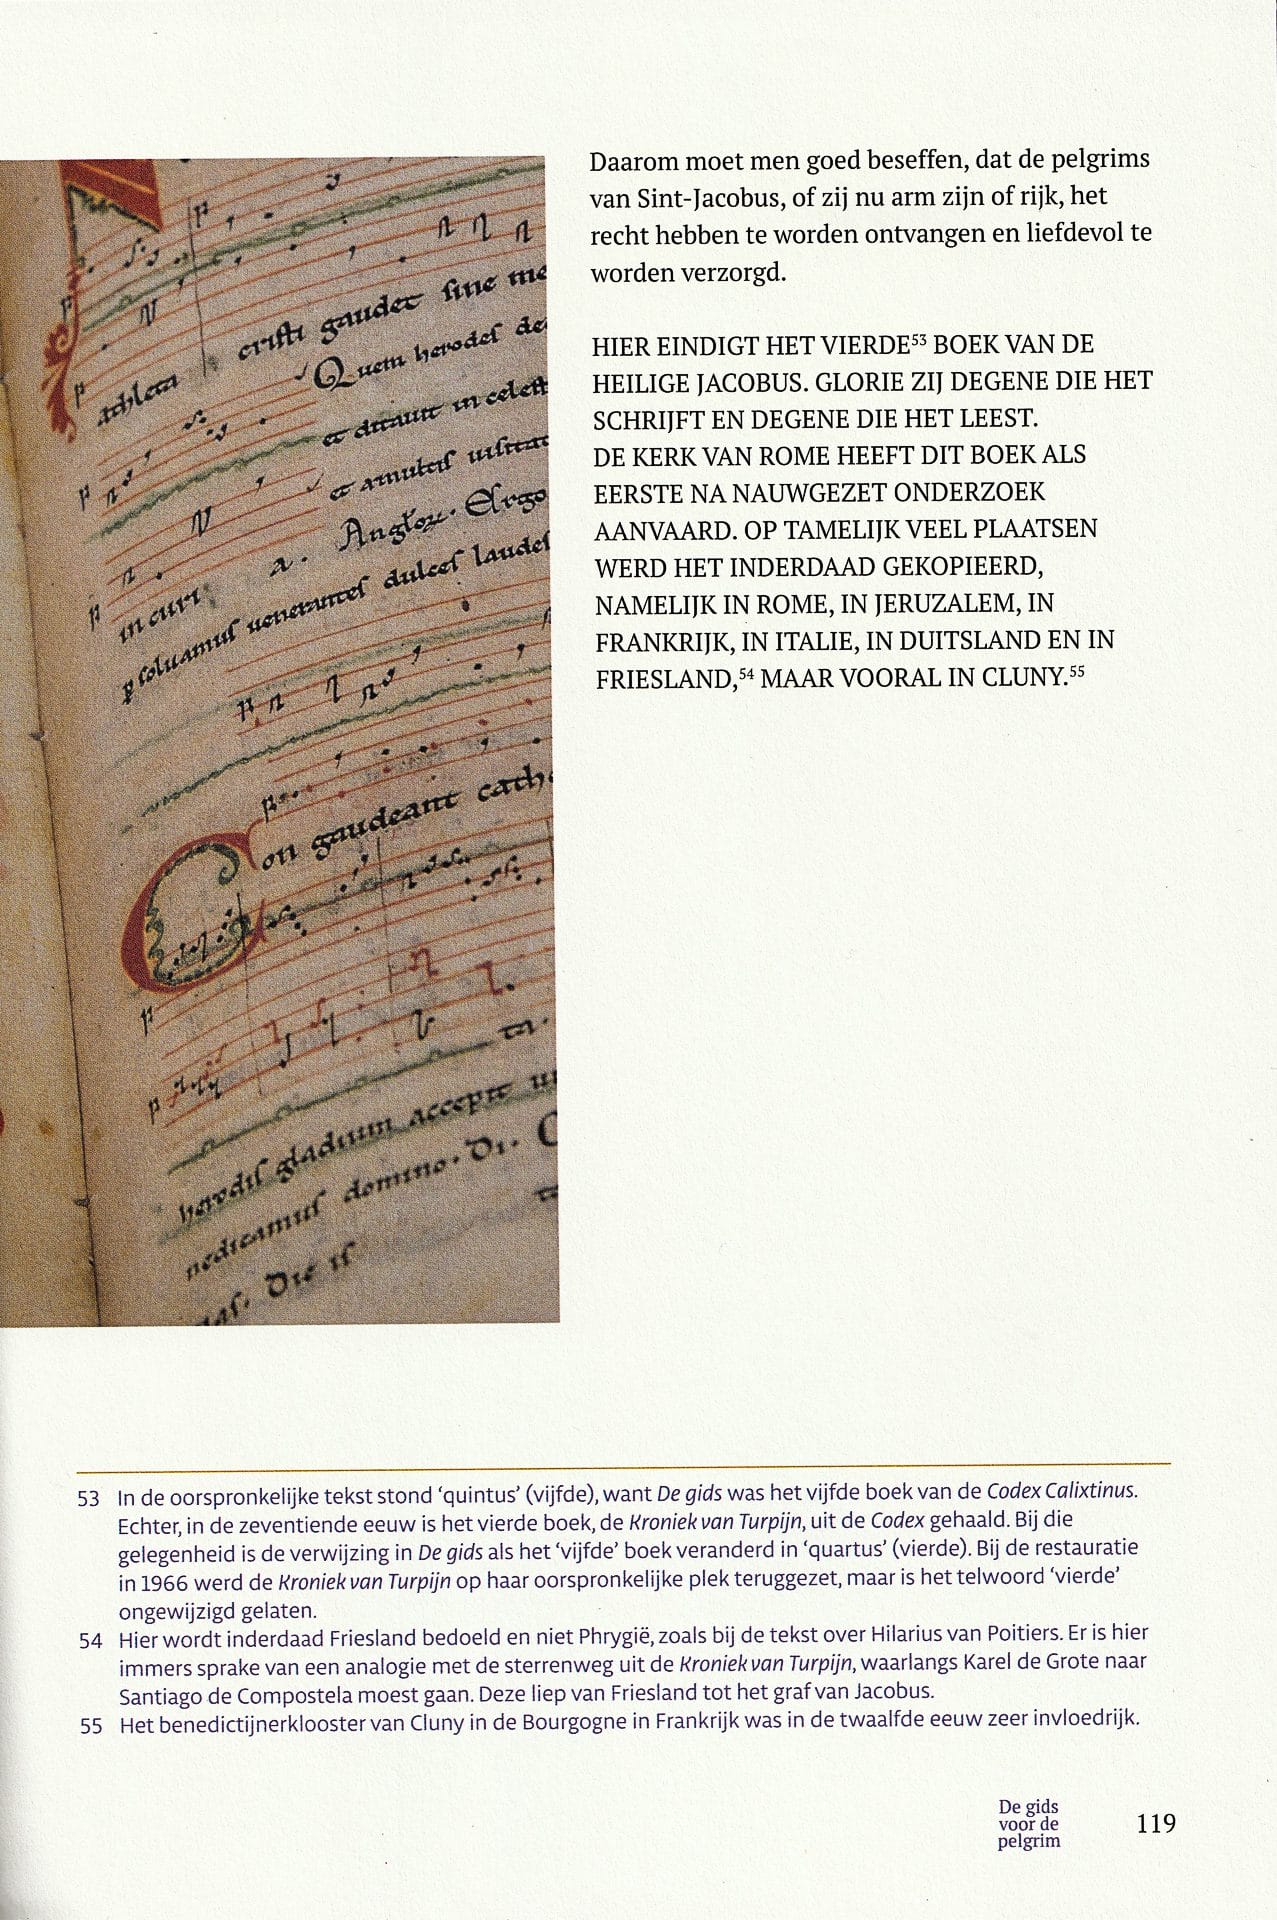 cristi gaudet sine me
athlera
Quem herodes de
et ditauit in celest
et amuleis uisitat
Angloꝝ. Ergo
in curi a.
psoluamus uenerantes dulces laudes
Con gaudeant catho
ta.
herodis gladium accepit ui
nedicamus domino. Di. C
as. Die is
Daarom moet men goed beseffen, dat de pelgrims
van Sint-Jacobus, of zij nu arm zijn of rijk, het
recht hebben te worden ontvangen en liefdevol te
worden verzorgd.
HIER EINDIGT HET VIERDE⁵³ BOEK VAN DE
HEILIGE JACOBUS. GLORIE ZIJ DEGENE DIE HET
SCHRIJFT EN DEGENE DIE HET LEEST.
DE KERK VAN ROME HEEFT DIT BOEK ALS
EERSTE NA NAUWGEZET ONDERZOEK
AANVAARD. OP TAMELIJK VEEL PLAATSEN
WERD HET INDERDAAD GEKOPIEERD,
NAMELIJK IN ROME, IN JERUZALEM, IN
FRANKRIJK, IN ITALIE, IN DUITSLAND EN IN
FRIESLAND,⁵⁴ MAAR VOORAL IN CLUNY.⁵⁵
53 In de oorspronkelijke tekst stond ‘quintus’ (vijfde), want De gids was het vijfde boek van de Codex Calixtinus.
Echter, in de zeventiende eeuw is het vierde boek, de Kroniek van Turpijn, uit de Codex gehaald. Bij die
gelegenheid is de verwijzing in De gids als het ‘vijfde’ boek veranderd in ‘quartus’ (vierde). Bij de restauratie
in 1966 werd de Kroniek van Turpijn op haar oorspronkelijke plek teruggezet, maar is het telwoord ‘vierde’
ongewijzigd gelaten.
54 Hier wordt inderdaad Friesland bedoeld en niet Phrygië, zoals bij de tekst over Hilarius van Poitiers. Er is hier
immers sprake van een analogie met de sterrenweg uit de Kroniek van Turpijn, waarlangs Karel de Grote naar
Santiago de Compostela moest gaan. Deze liep van Friesland tot het graf van Jacobus.
55 Het benedictijnerklooster van Cluny in de Bourgogne in Frankrijk was in de twaalfde eeuw zeer invloedrijk.
De gids
voor de
pelgrim
119